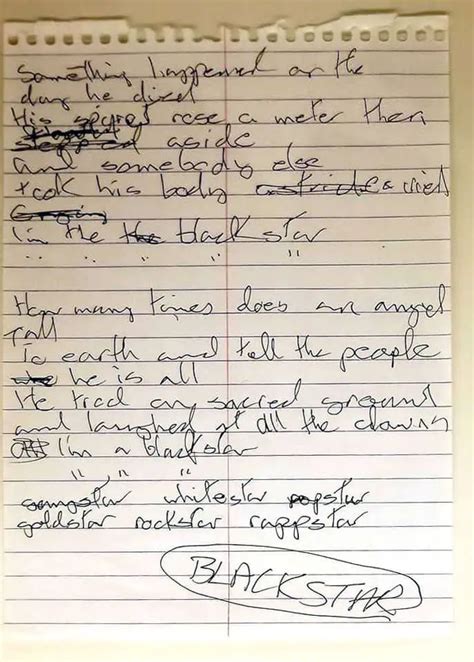 Something happened on the
day he died
His spirit rose a meter then
stepped aside
and somebody else
took his body & cried
I'm the the black star
" " " "
How many times does an angel
fall
To earth and tell the people
he is all
He trod on sacred ground
and laughed at all the
I'm a blackstar
" " "
gangstar whitestar popstar
goldstar rockstar rappstar
BLACKSTAR